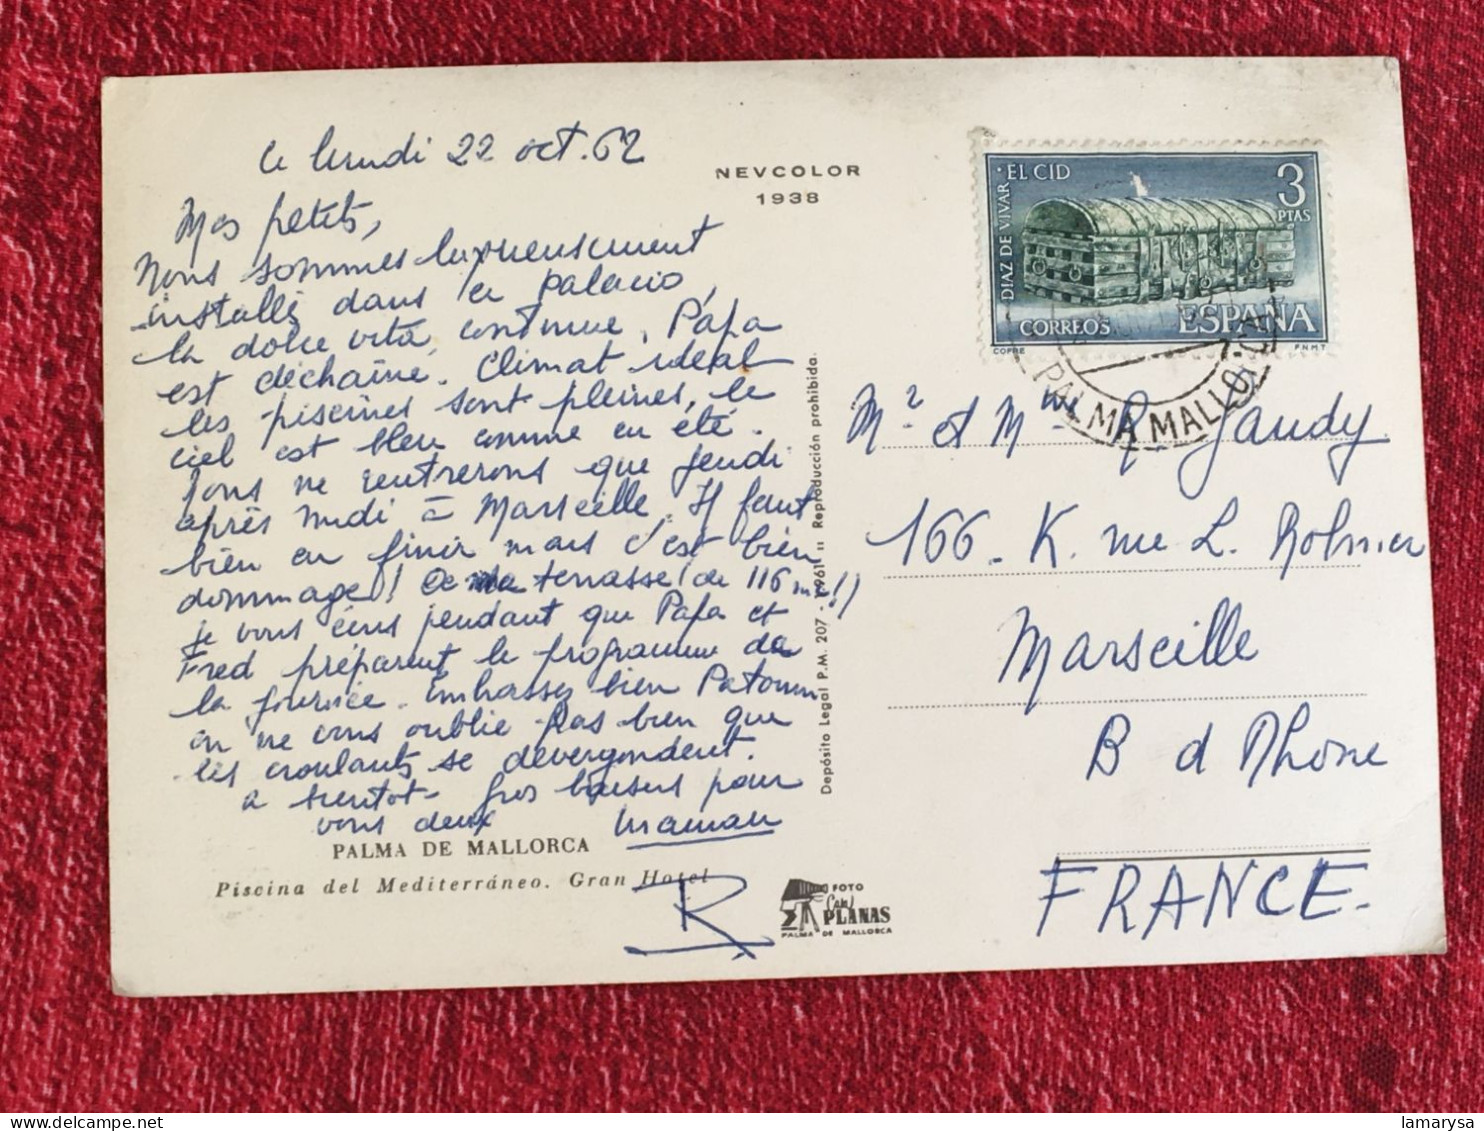 ce lundi 22 oct. 62
Mes petits,
Nous sommes luxueusement
installés dans ce palacio,
la dolce vita continue, Papa
est déchaîné. Climat idéal
les piscines sont pleines, le
ciel est bleu comme en été.
Nous ne rentrerons que jeudi
après midi à Marseille. Il faut
bien en finir mais c'est bien
dommage! terrasse (de 116 m2!)
je vous écris pendant que Papa et
Fred préparent le programme de
la journée. Embrassez bien
on ne vous oublie pas bien que
les croulants se dévergondent.
A bientôt - gros baisers pour
vous deux Maman
R
NEVCOLOR
1938
PALMA DE MALLORCA
Piscina del Mediterráneo. Gran Hotel
Depósito Legal P.M. 207 - 1961 II Reproducción prohibida.
FOTO
PLANAS
PALMA DE MALLORCA
DIAZ DE VIVAR · EL CID
3
PTAS
CORREOS
ESPAÑA
COFRE
F.N.M.T
PALMA MALLORCA
Mr et Mme R. Gaudy
166 - K. rue L. Rolmer
Marseille
B d Rhone
FRANCE.
lamarysa